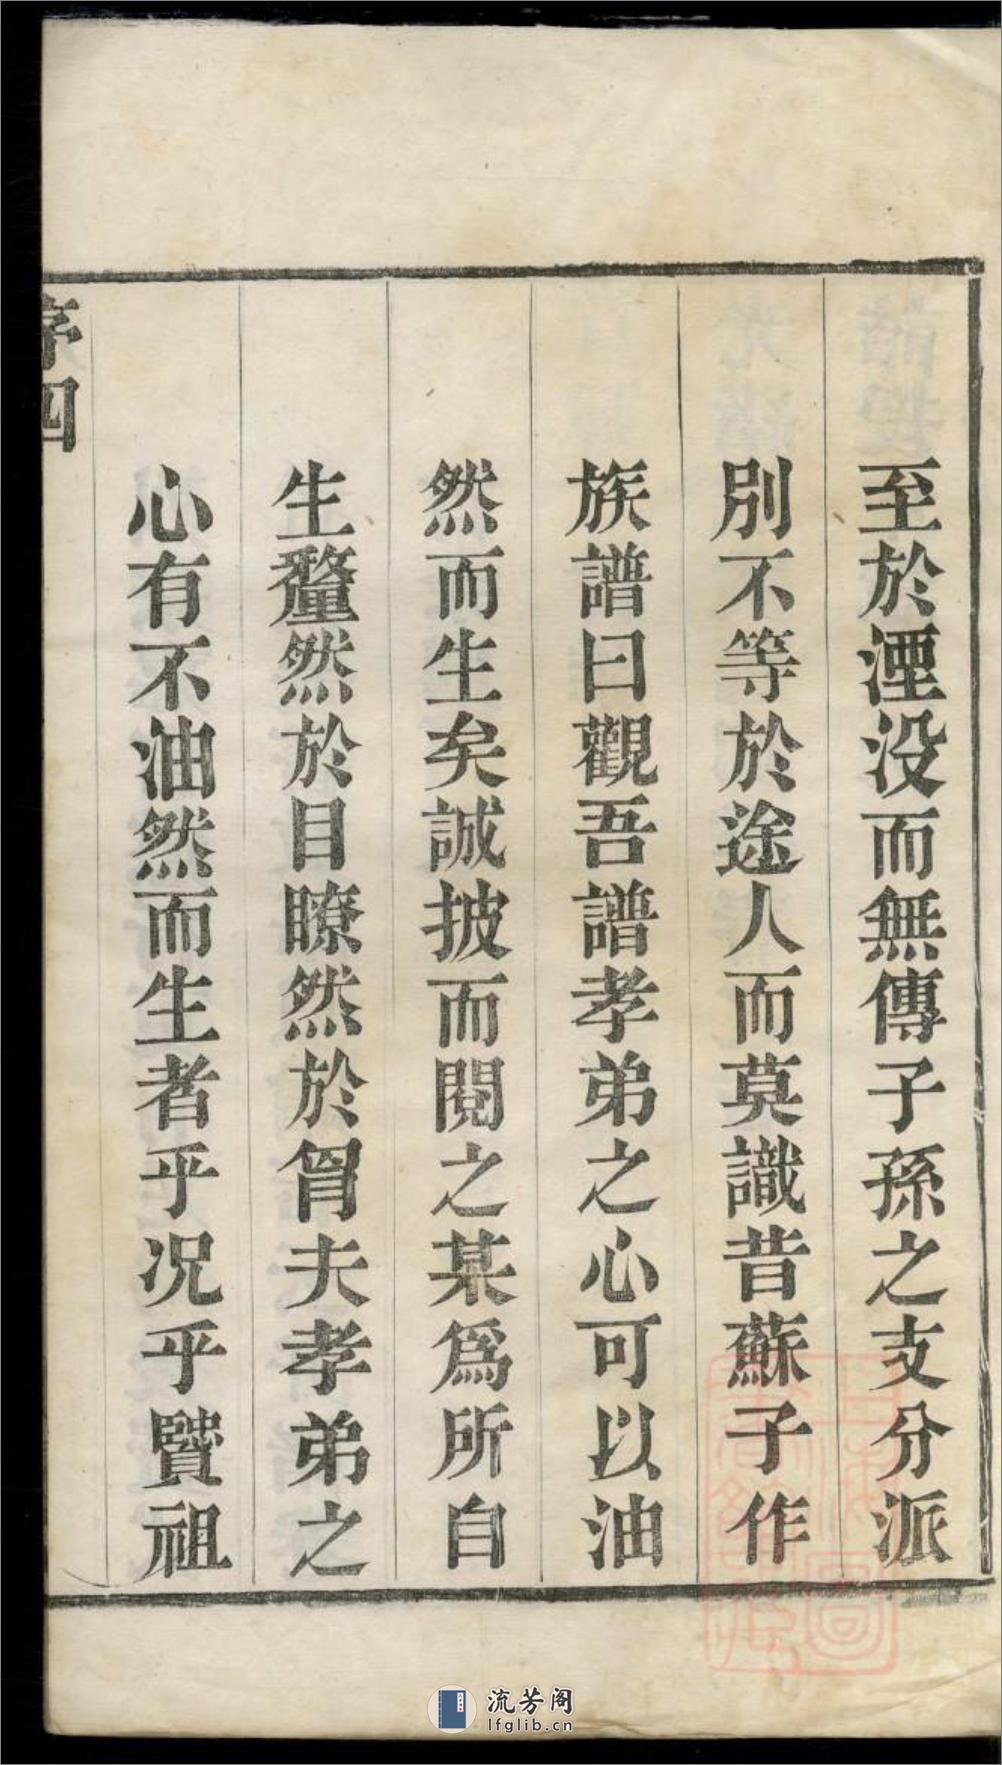 至於湮没而無傳子孫之支分派
別不等於途人而莫識昔蘇子作
族譜曰觀吾譜孝弟之心可以油
然而生矣誠披而閱之某爲所自
生釐然於目瞭然於胷夫孝弟之
心有不油然而生者乎况乎賢祖
序四
流芳阁
lfglib.cn